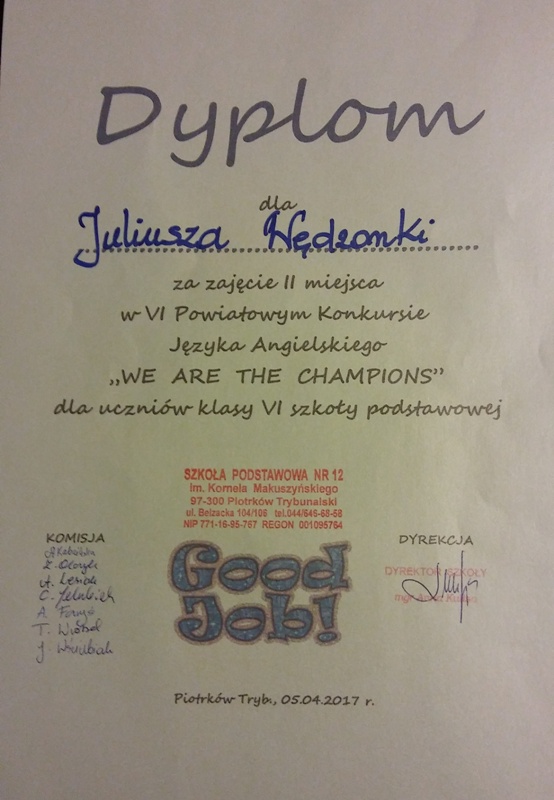 Dyplom
dla
Juliusza Wędzonki
za zajęcie II miejsca
w VI Powiatowym Konkursie
Języka Angielskiego
„WE ARE THE CHAMPIONS”
dla uczniów klasy VI szkoły podstawowej
SZKOŁA PODSTAWOWA NR 12
im. Kornela Makuszyńskiego
97-300 Piotrków Trybunalski
ul. Belzacka 104/106 tel.044/646-68-68
NIP 771-16-95-767 REGON 001095764
KOMISJA
A.
A. Lesiak
T. Wróbel
DYREKCJA
DYREKTOR SZKOŁY
mgr
Good
Job!
Piotrków Tryb., 05.04.2017 r.